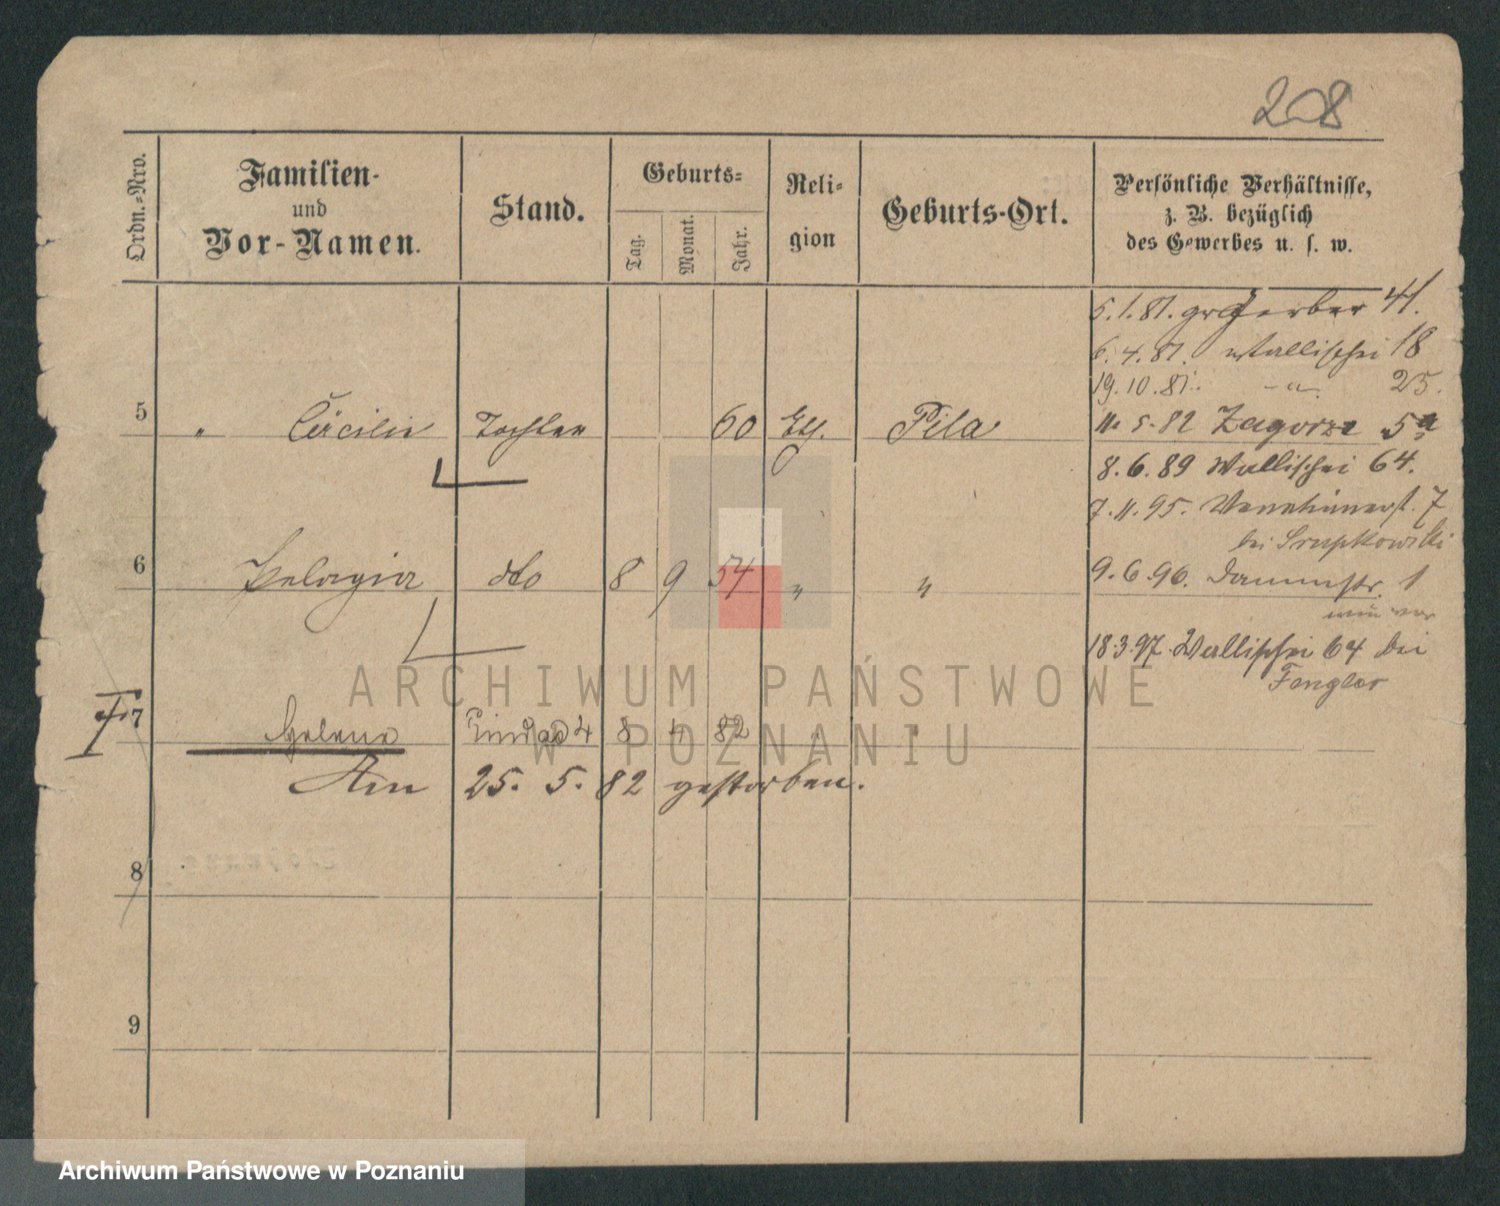 208
Ordn.-Nro.
Familien-
und
Vor-Namen.
Stand.
Geburts-
Tag.
Monat.
Jahr.
Reli-
gion
Geburts-Ort.
Persönliche Verhältnisse,
z. B. bezüglich
des Gewerbes u. s. w.
5.1.81. gr Gerber 41.
6.4.81. Wallischei 18
19.10.81. -"- 25.
5 " Cäcilie Tochter 60 Pila
11. 5. 82 Zagorze 5a
8.6.89 Wallischei 64.
7.11.95. Venetianerst. 7
bei
6 Pelagia dto 8 9 54 " "
9.6.96. Dammstr. 1
18.3.97. Wallischei 64 bei
Fengler
ARCHIWUM PAŃSTWOWE
W POZNANIU
7 Helene 8 4 82 " "
Am 25. 5. 82 gestorben.
8
9
Archiwum Państwowe w Poznaniu